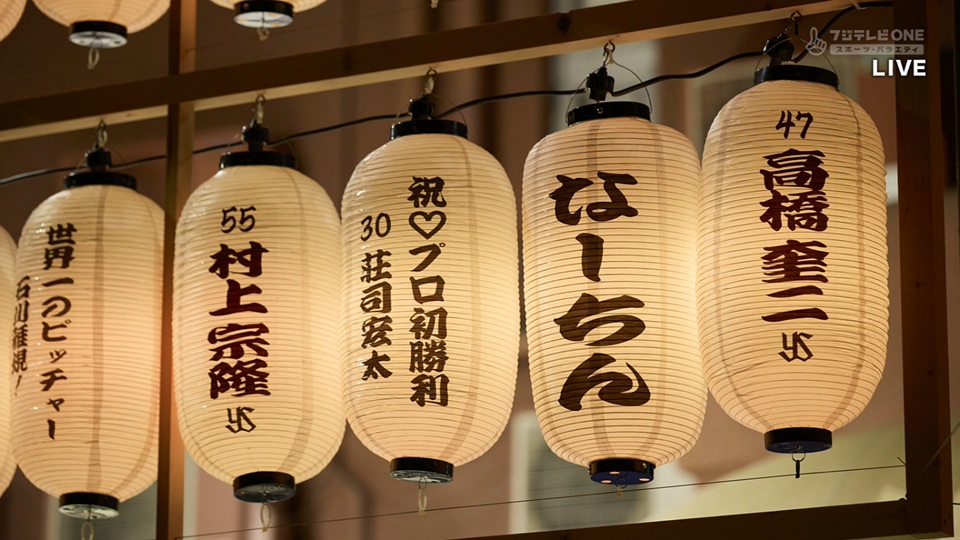 フジテレビONE
スポーツ・バラエティ
LIVE
47
高橋奎二
YS
なーちん
祝♡プロ初勝利
30 荘司宏太
55
村上宗隆
YS
世界一のピッチャー
石川雅規!